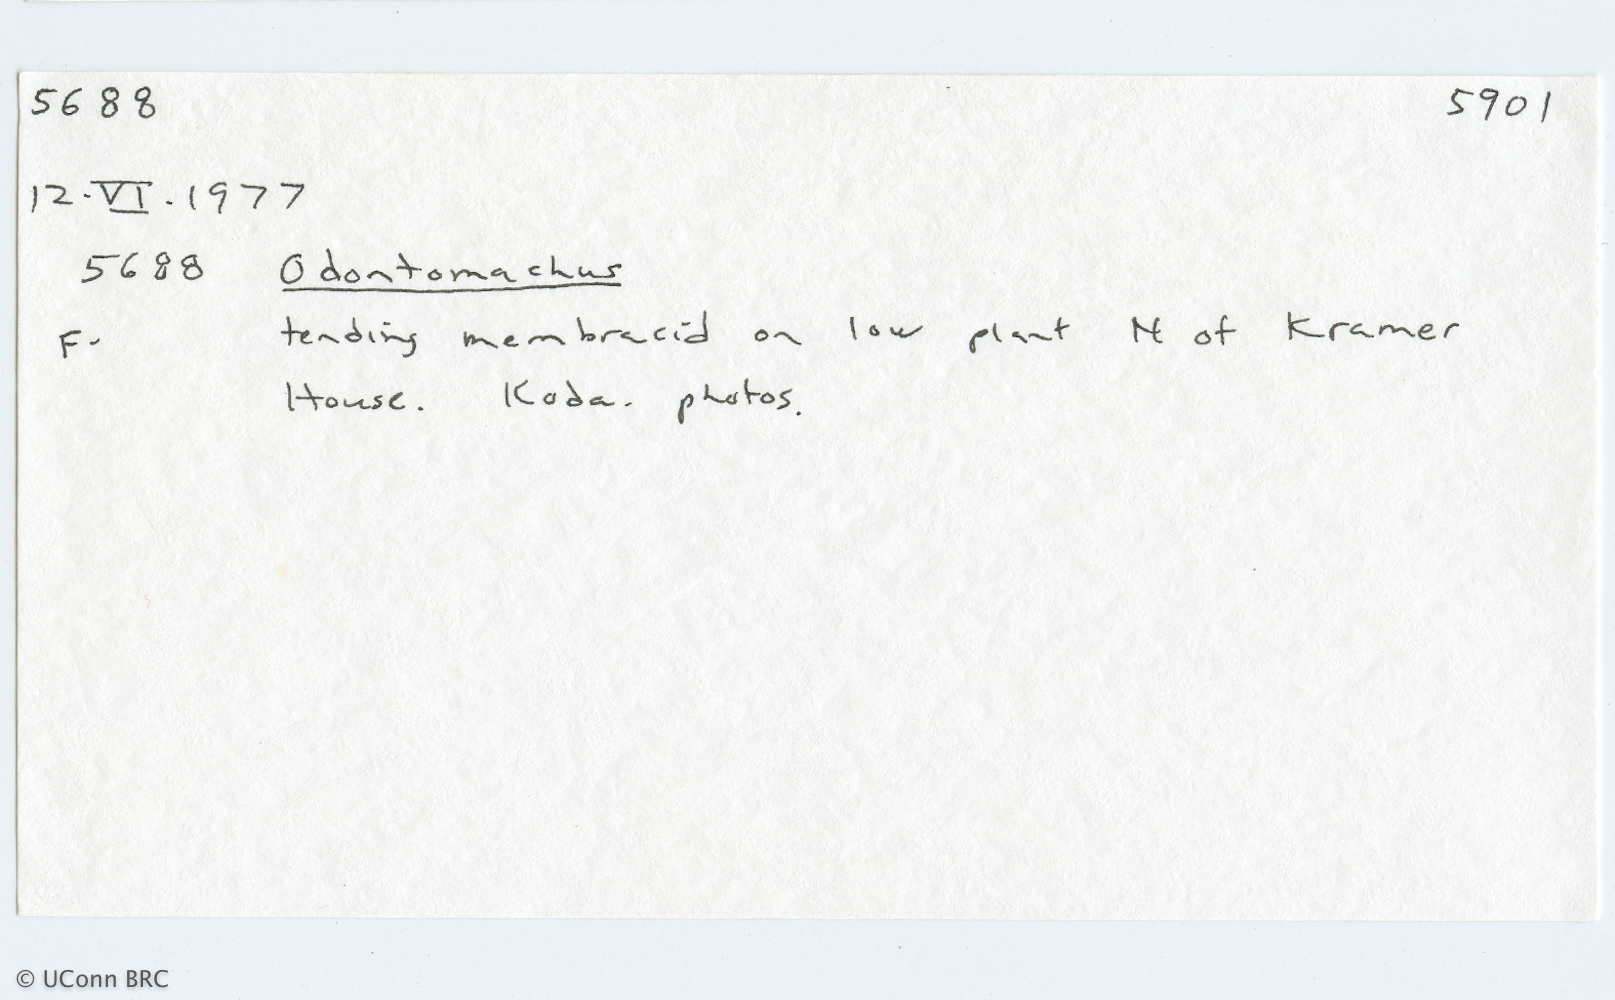 5688 5901
12.VI.1977
5688 Odontomachus
F. tending membracid on low plant N of Kramer
House. Koda. photos.
© UConn BRC